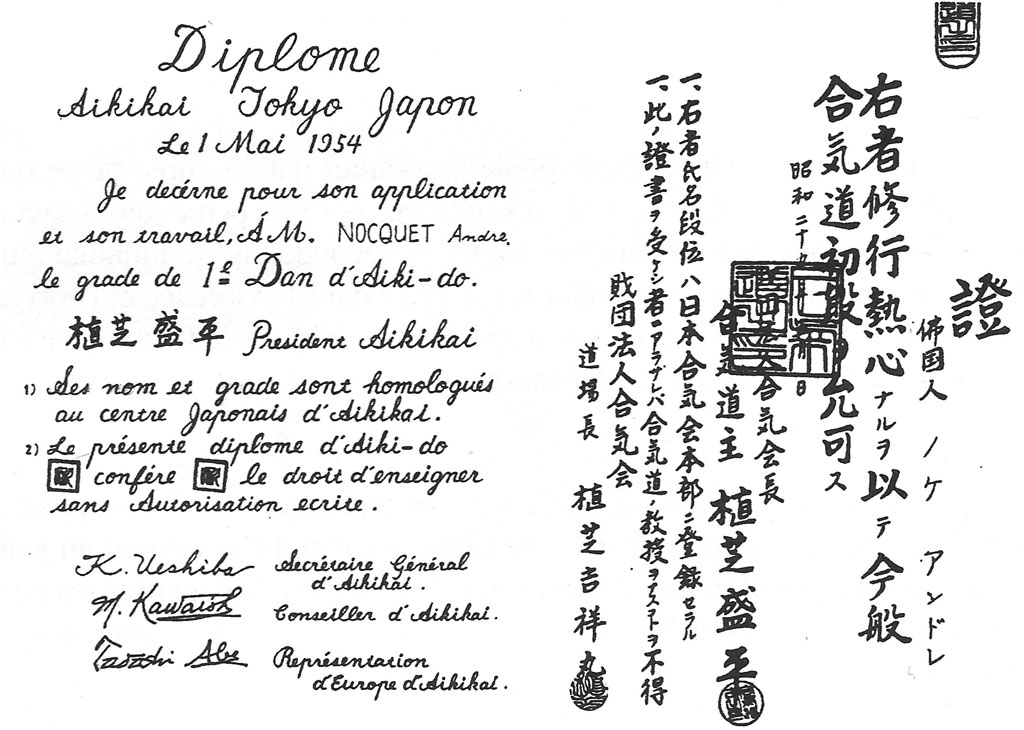 Diplome
Aikikai Tokyo Japon
Le 1 Mai 1954
Je decérne pour son application
et son travail, Á M. NOCQUET André.
le grade de 1e Dan d'Aiki-do.
植芝盛平 President Aikikai
1) Ses nom et grade sont homologués
au centre Japonais d'Aikikai.
2) Le présente diplome d'Aiki-do
confére le droit d'enseigner
sans Autorisation ecrite.
K. Ueshiba Secrétaire Général
d'Aikikai.
M. Kawaishi Conseiller d'Aikikai.
Tadashi Abe Représentation
d'Europe d'Aikikai.
證
佛国人 ノケ アンドレ
右者修行熱心ナルヲ以テ今般
合気道初段ヲ允可ス
昭和二十九 日
合気会長
合気道主 植芝盛平
一、右者氏名段位ハ日本合気会本部ニ登録セラル
一、此ノ證書ヲ受ケシ者ニアラザレバ合気道ノ教授ヲナストヲ不得
財団法人合気会
道場長 植芝吉祥丸